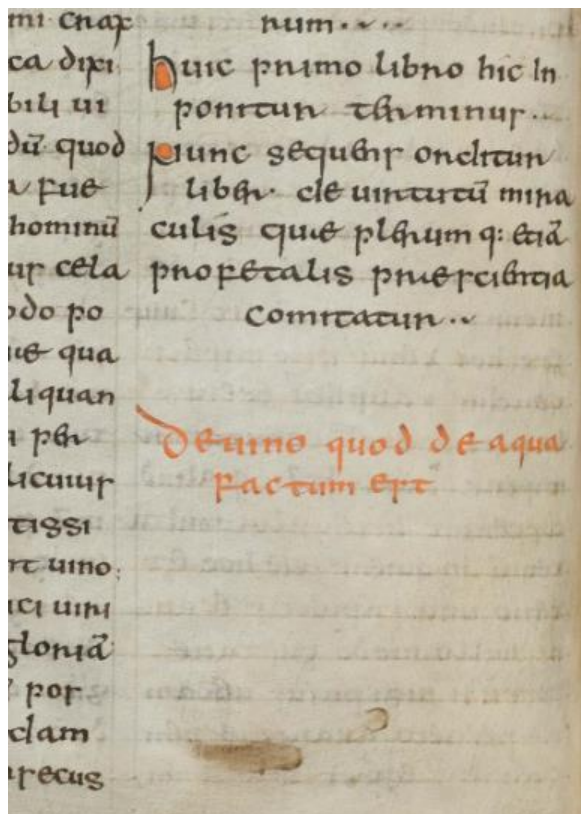 mi cras
ca dixi
bili ui
dū quod
a fue
hominū
us cela
odo po
ue qua
liquan
a per
licuius
tissi
st uino
ici uiri
gloriā
pos
clam
recus
num
huic primo libro hic in
ponitur terminus
Nunc sequens orditur
liber de uirtutū mira
culis quae plerumq: etiā
profetalis praescientia
comitatur
De uino quod de aqua
factum est